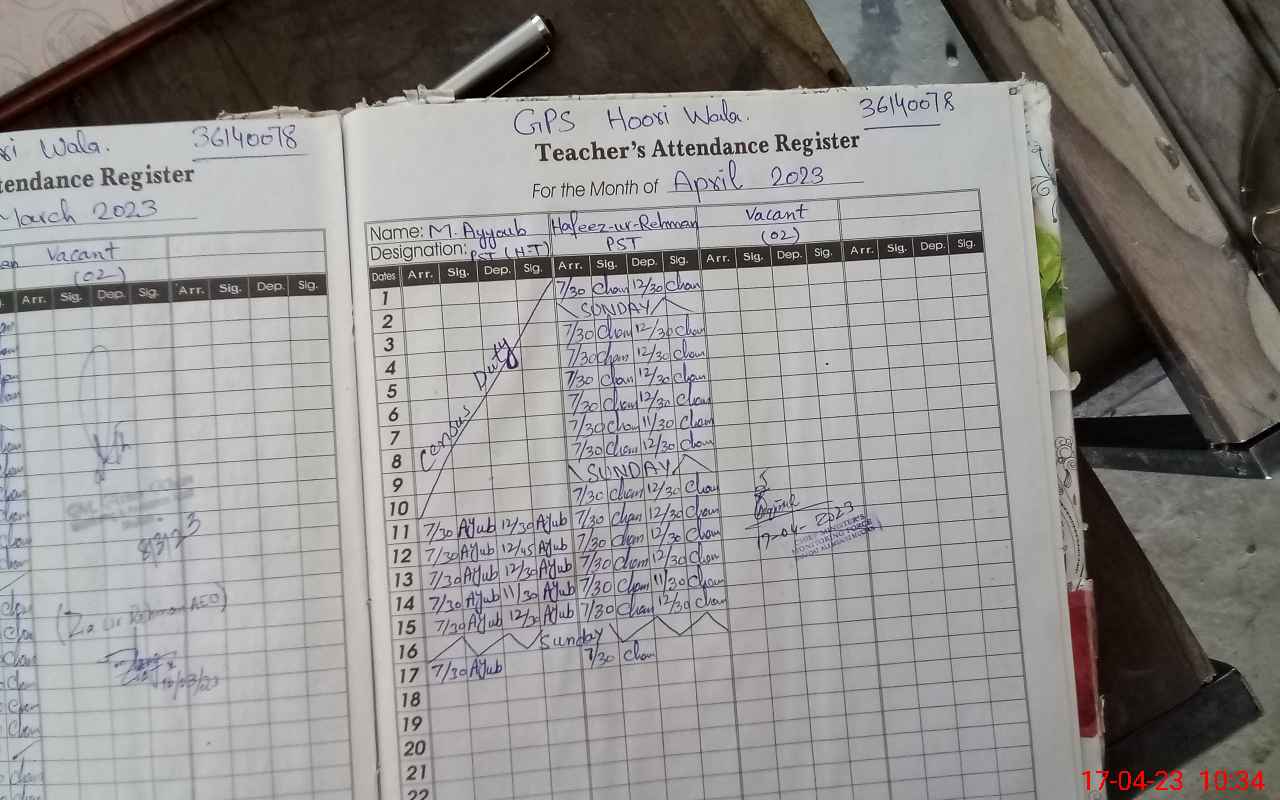 ri Wala. 36140078
tendance Register
March 2023
Vacant
(02)
Arr. Sig. Dep. Sig. Arr. Sig. Dep. Sig.
8/3/23
(Zia ur Rehman AEO)
GPS Hoori Wala. 36140078
Teacher's Attendance Register
For the Month of April 2023
Name: M. Ayyoub Hafeez-ur-Rehman Vacant
Designation: PST (H-T) PST (02)
Dates Arr. Sig. Dep. Sig. Arr. Sig. Dep. Sig. Arr. Sig. Dep. Sig. Arr. Sig. Dep. Sig.
Census Duty
1 7/30 Chan 12/30 Chan
2 SUNDAY
3 7/30 Chan 12/30 Chan
4 7/30 Chan 12/30 Chan
5 7/30 Chan 12/30 Chan
6 7/30 Chan 12/30 Chan
7 7/30 Chan 11/30 Chan
8 7/30 Chan 12/30 Chan
9 SUNDAY
10 7/30 Chan 12/30 Chan
11 7/30 AJub 12/30 AJub 7/30 Chan 12/30 Chan
12 7/30 AJub 12/45 AJub 7/30 Chan 12/30 Chan
13 7/30 AJub 12/30 AJub 7/30 Chan 12/30 Chan
14 7/30 AJub 11/30 AJub 7/30 Chan 11/30 Chan
15 7/30 AJub 12/30 AJub 7/30 Chan 12/30 Chan
16 Sunday
17 7/30 AJub 7/30 Chan
18
19
20
21
22
17-04-2023
CHIEF MINISTER'S
MONITORING FORCE
17-04-23 10:34